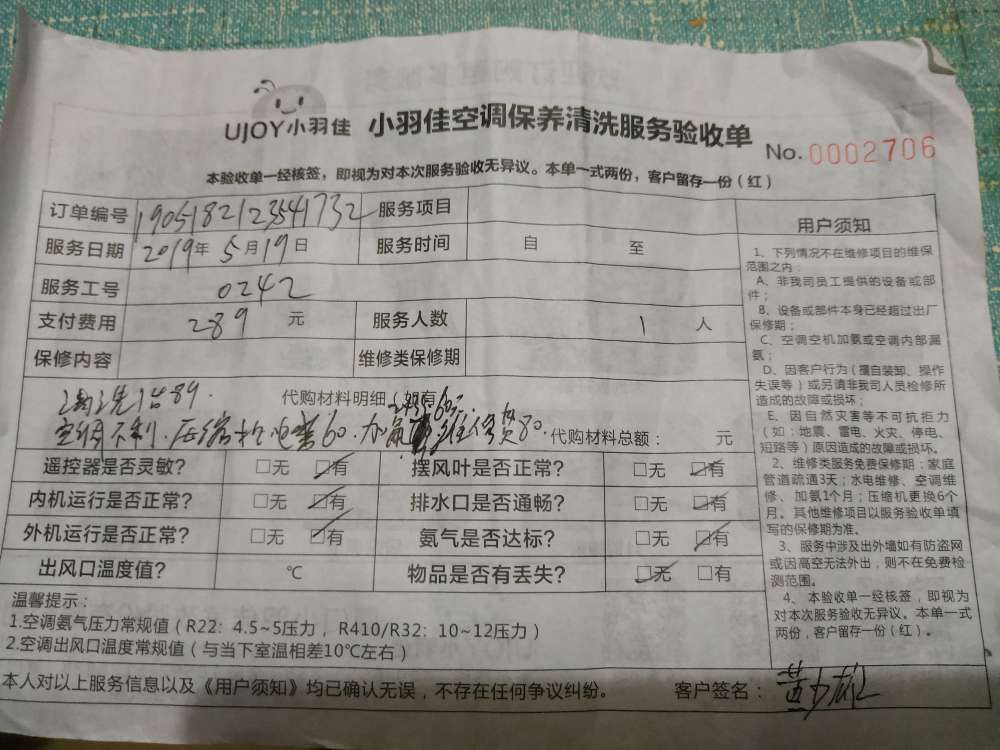 UJOY小羽佳 小羽佳空调保养清洗服务验收单
No. 0002706
本验收单一经核签，即视为对本次服务验收无异议。本单一式两份，客户留存一份（红）
订单编号 1905182123541732 服务项目
服务日期 2019年5月19日 服务时间 自 至
服务工号 0242
支付费用 289 元 服务人数 1 人
保修内容 维修类保修期
清洗1台89. 代购材料明细（如有）
空调不制. 压缩机电容60. 加氟 维修费80. 代购材料总额： 元
遥控器是否灵敏？ □无 □有 摆风叶是否正常？ □无 □有
内机运行是否正常？ □无 □有 排水口是否通畅？ □无 □有
外机运行是否正常？ □无 □有 氨气是否达标？ □无 □有
出风口温度值？ ℃ 物品是否有丢失？ □无 □有
温馨提示：
1.空调氨气压力常规值（R22：4.5~5压力，R410/R32：10~12压力）
2.空调出风口温度常规值（与当下室温相差10℃左右）
本人对以上服务信息以及《用户须知》均已确认无误，不存在任何争议纠纷。 客户签名：
用户须知
1、下列情况不在维修项目的维保
范围之内：
A、非我司员工提供的设备或部
件；
8、设备或部件本身已经超过出厂
保修期；
C、空调空机加氨或空调内部漏
氨；
D、因客户行为（擅自装卸、操作
失误等）或另请非我司人员检修所
造成的故障或损坏；
E、因自然灾害等不可抗拒力
（如：地震、雷电、火灾、停电、
短路等）原因造成的故障或损坏。
2、维修类服务免费保修期：家庭
管道疏通3天；水电维修、空调维
修、加氨1个月；压缩机更换6个
月。其他维修项目以服务验收单填
写的保修期为准。
3、服务中涉及出外墙如有防盗网
或因高空无法外出，则不在免费检
测范围。
4、本验收单一经核签，即视为
对本次服务验收无异议。本单一式
两份，客户留存一份（红）。